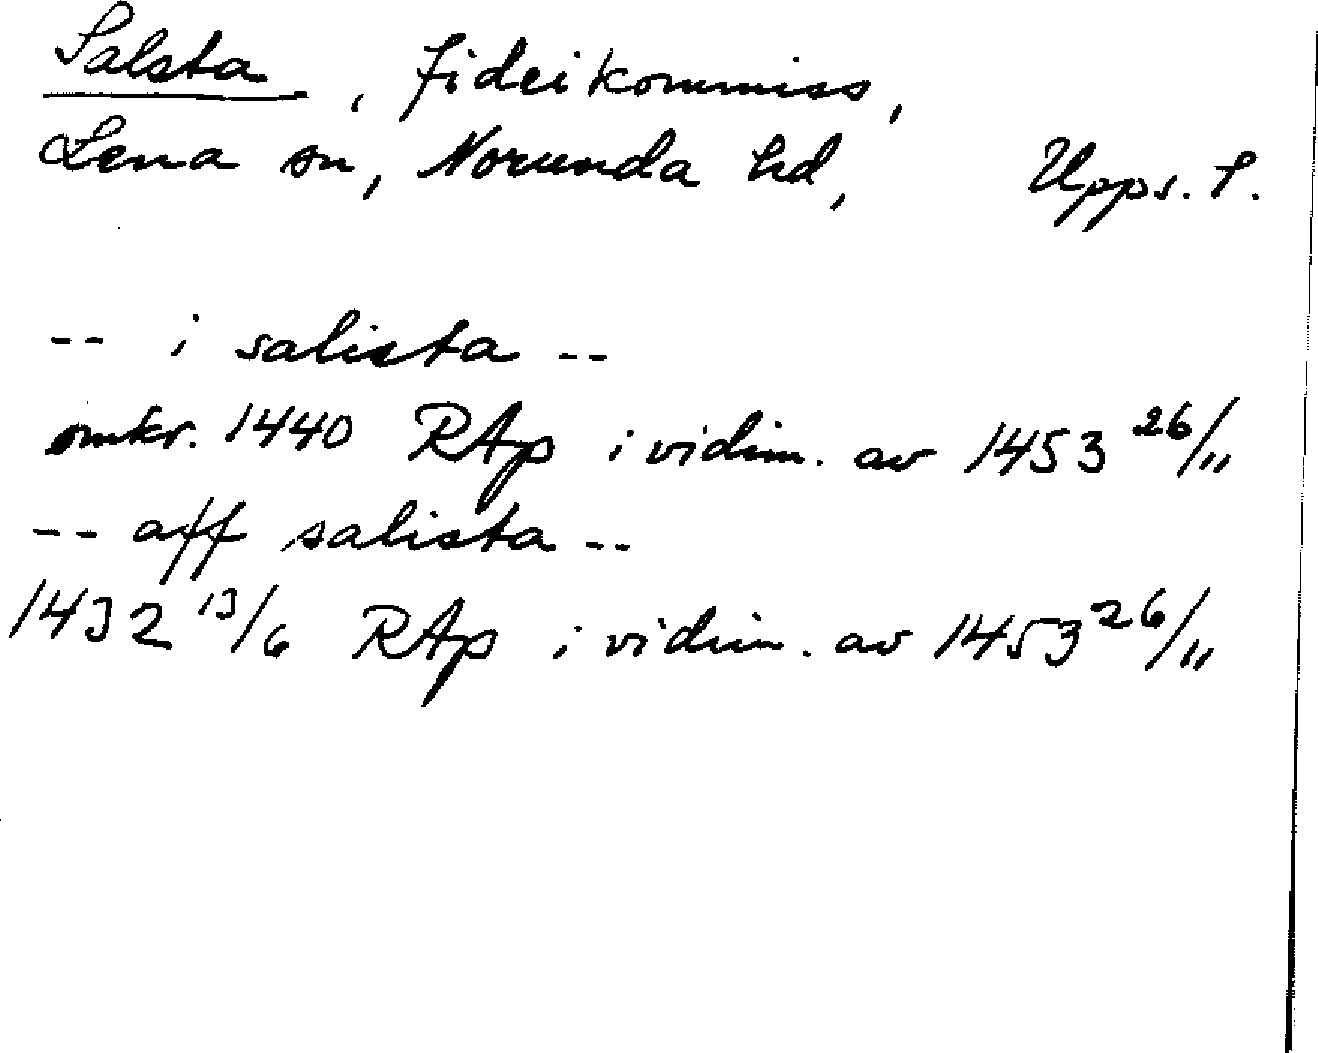 Salsta, fideikommiss,
Lena sn, Norunda hd, Upps. l.
-- i salista --
omkr. 1440 RAp i vidim. av 1453 26/11
-- aff salista --
1432 13/6 RAp i vidim. av 1453 26/11